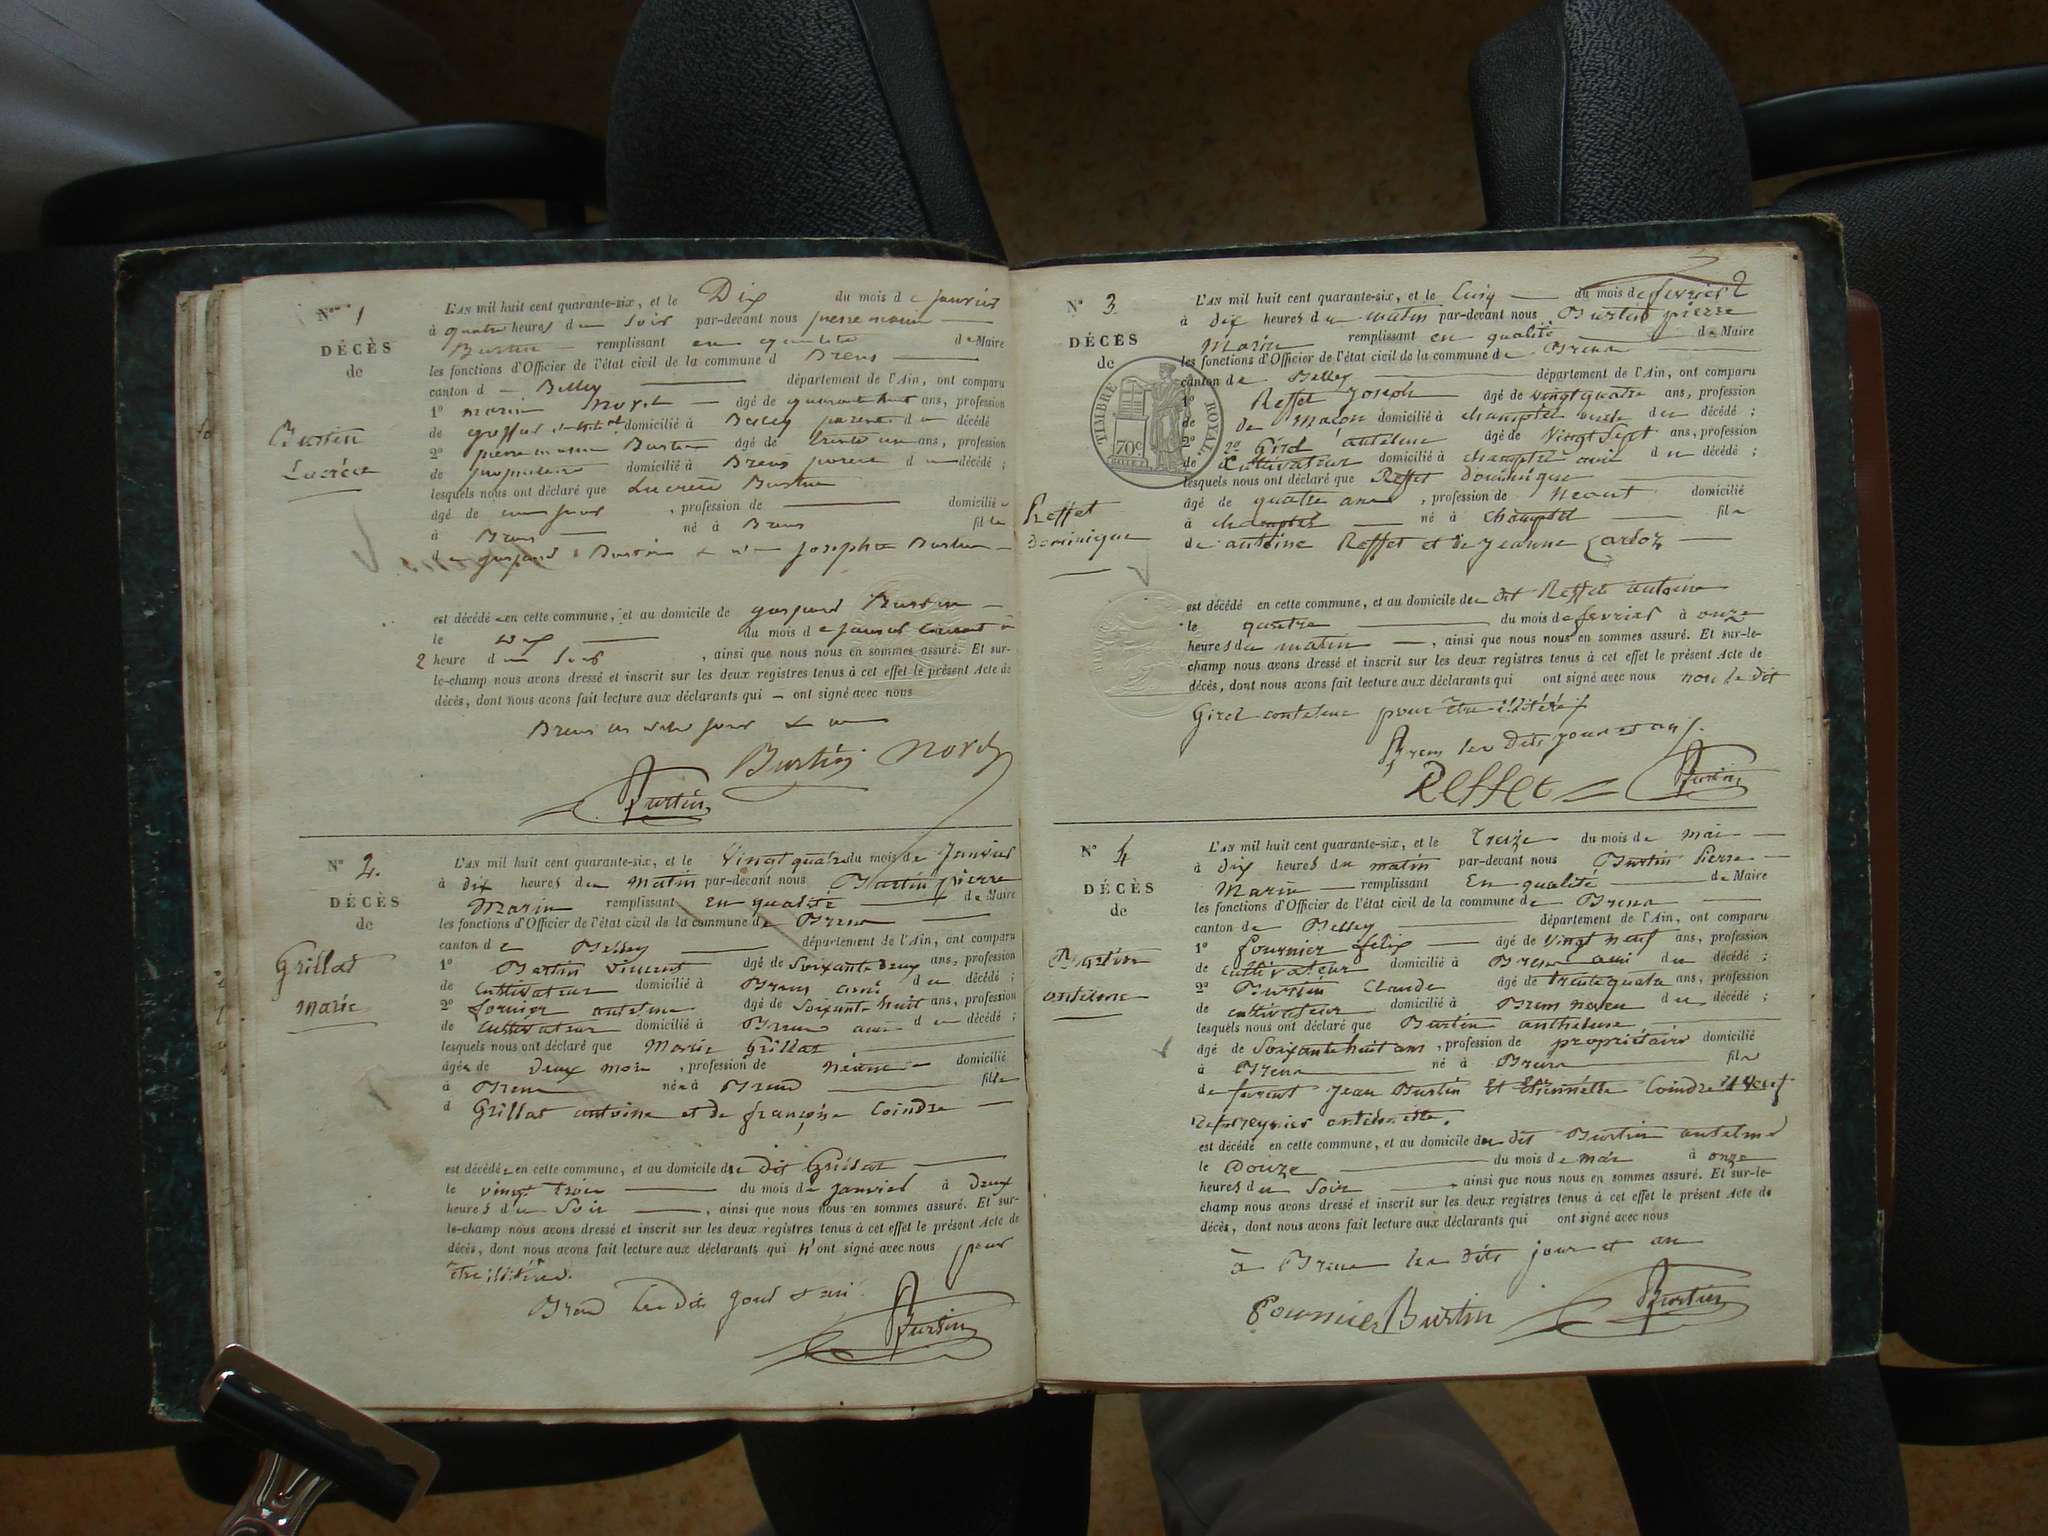 N° 1
DÉCÈS
de
Burtin
Lucrèce
L'AN mil huit cent quarante-six, et le Dix du mois de janvier
à quatre heures du soir par-devant nous pierre marin
Burtin remplissant en qualité de Maire
les fonctions d'Officier de l'état civil de la commune d Brens
canton d Belley département de l'Ain, ont comparu
1° marin âgé de quarante huit ans, profession
de domicilié à Belley parent du décédé
2° pierre marin Burtin âgé de trente un ans, profession
de propriétaire domicilié à Brens parent du décédé ;
lesquels nous ont déclaré que Lucrèce Burtin
âgé de , profession de domicilié
à Brens né à Brens fille
de gaspard Burtin josephte Burtin
est décédée en cette commune, et au domicile de gaspard Burtin
le dix du mois de janvier courant à
2 heure du soir , ainsi que nous nous en sommes assuré. Et sur-
le-champ nous avons dressé et inscrit sur les deux registres tenus à cet effet le présent Acte de
décès, dont nous avons fait lecture aux déclarants qui ont signé avec nous
Brens jour et an
Burtin
Burtin
N° 2.
DÉCÈS
de
Grillat
marie
L'AN mil huit cent quarante-six, et le vingt quatre du mois de Janvier
à dix heures du matin par-devant nous Burtin pierre
Marin remplissant En qualité de Maire
les fonctions d'Officier de l'état civil de la commune de Brens
canton de Belley département de l'Ain, ont comparu
1° Burtin Vincent âgé de soixante deux ans, profession
de cultivateur domicilié à Brens ami du décédé ;
2° fornier antelme âgé de soixante huit ans, profession
de cultivateur domicilié à Brens ami du décédé ;
lesquels nous ont déclaré que Marie Grillat
âgée de deux mois , profession de néant domicilié
à Brens née à Brens fille
d Grillat antoine et de françoise Coindre
est décédée en cette commune, et au domicile de dit Grillat
le vingt trois du mois de janvier à deux
heures du soir , ainsi que nous nous en sommes assuré. Et sur-
le-champ nous avons dressé et inscrit sur les deux registres tenus à cet effet le présent Acte de
décès, dont nous avons fait lecture aux déclarants qui n'ont signé avec nous pour
être illitérés.
Brens les dits jour et an
Burtin
2
N° 3
DÉCÈS
de
TIMBRE ROYAL
70c
Reffet
dominique
L'AN mil huit cent quarante-six, et le cinq du mois de fevrier
à dix heures du matin par-devant nous Burtin pierre
Marin remplissant en qualité de Maire
les fonctions d'Officier de l'état civil de la commune de Brens
canton de Belley département de l'Ain, ont comparu
1° Reffet Joseph âgé de vingt quatre ans, profession
de de Maçon domicilié à champtel oncle du décédé ;
2° 2° Girel antelme âgé de vingt sept ans, profession
de cultivateur domicilié à champtel ami du décédé ;
lesquels nous ont déclaré que Reffet dominique
âgé de quatre ans , profession de neant domicilié
à champtel né à champtel fils
de antoine Reffet et de jeanne
est décédé en cette commune, et au domicile du dit Reffet antoine
le quatre du mois de fevrier à onze
heures du matin , ainsi que nous nous en sommes assuré. Et sur-le-
champ nous avons dressé et inscrit sur les deux registres tenus à cet effet le présent Acte de
décès, dont nous avons fait lecture aux déclarants qui ont signé avec nous non le dit
Girel pour être illitéré
Brens les dits jour et an
Reffet Burtin
N° 4
DÉCÈS
de
Burtin
antelme
L'AN mil huit cent quarante-six, et le treize du mois de mai
à dix heures du matin par-devant nous Burtin Pierre
Marin remplissant En qualité de Maire
les fonctions d'Officier de l'état civil de la commune de Brens
canton de Belley département de l'Ain, ont comparu
1° fournier félix âgé de vingt neuf ans, profession
de cultivateur domicilié à Brens ami du décédé ;
2° Burtin Claude âgé de trente quatre ans, profession
de cultivateur domicilié à Brens neveu du décédé ;
lesquels nous ont déclaré que Burtin anthelme
âgé de soixante huit ans , profession de propriétaire domicilié
à Brens né à Brens fils
de furent Jean Burtin Et Etiennette Coindre
est décédé en cette commune, et au domicile du dit Burtin antelme
le Douze du mois de mai à onze
heures du soir , ainsi que nous nous en sommes assuré. Et sur-le-
champ nous avons dressé et inscrit sur les deux registres tenus à cet effet le présent Acte de
décès, dont nous avons fait lecture aux déclarants qui ont signé avec nous
à Brens les dits jour et an
fournier Burtin Burtin